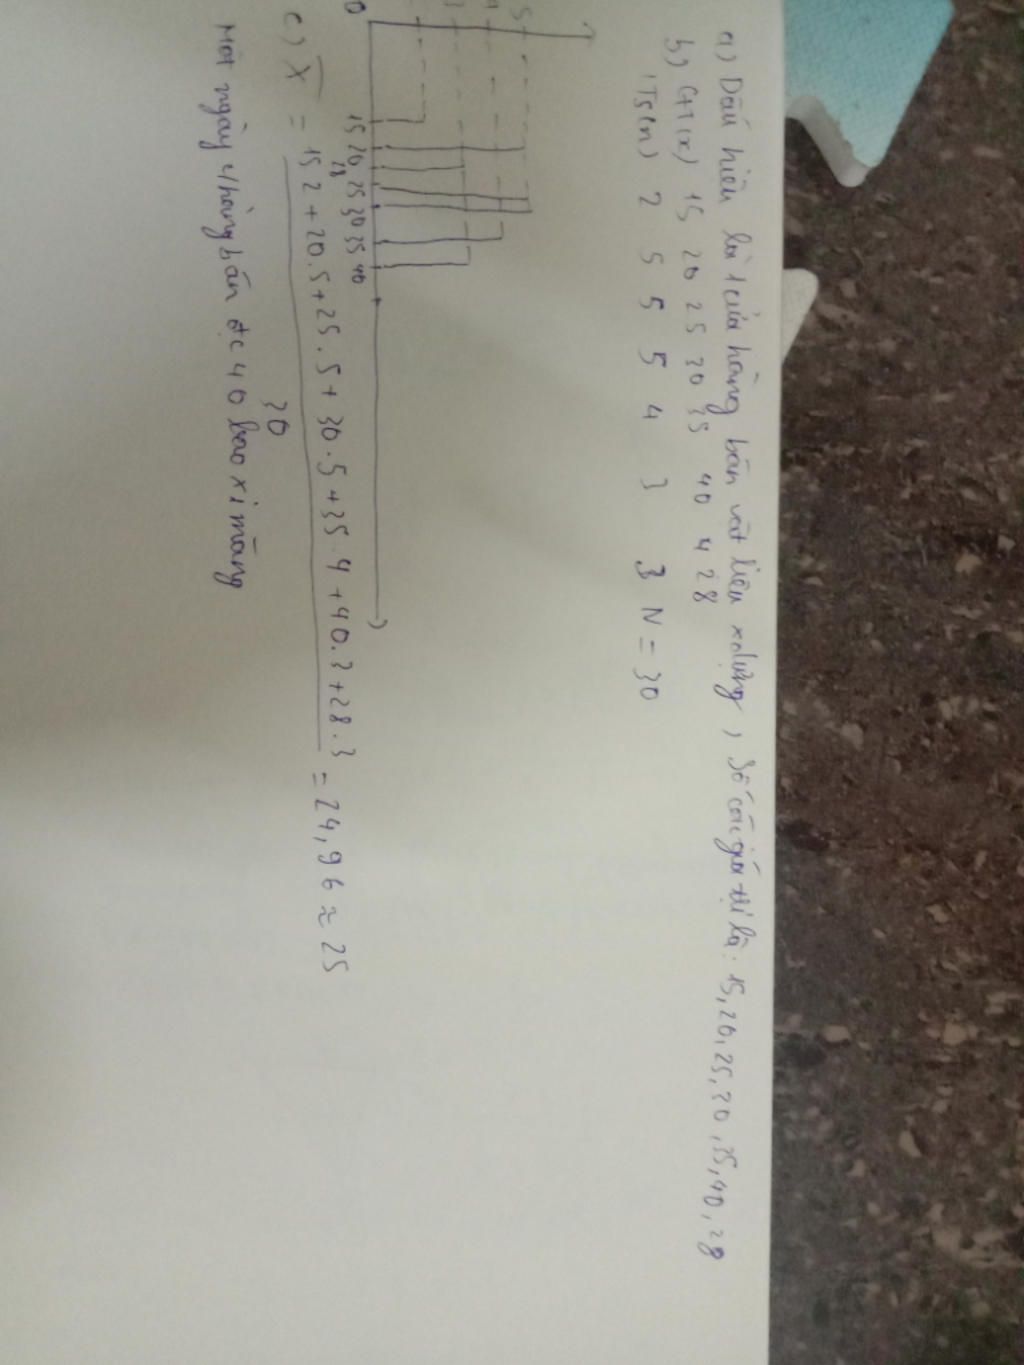 a) Dấu hiệu là 1 cửa hàng bán vật liệu xdựng, Số các giá trị là: 15, 20, 25, 30, 35, 40, 28
b) GT(x) 15 20 25 30 35 40 28
TS(n) 2 5 5 5 4 3 3 N = 30
5
4
3
0 15 20 28 25 30 35 40
c) X̄ = 15 2 + 20.5 + 25.5 + 30.5 + 35.4 + 40.3 + 28.3 = 24,96 ≈ 25
30
Một ngày bán đc 40 bao xi măng